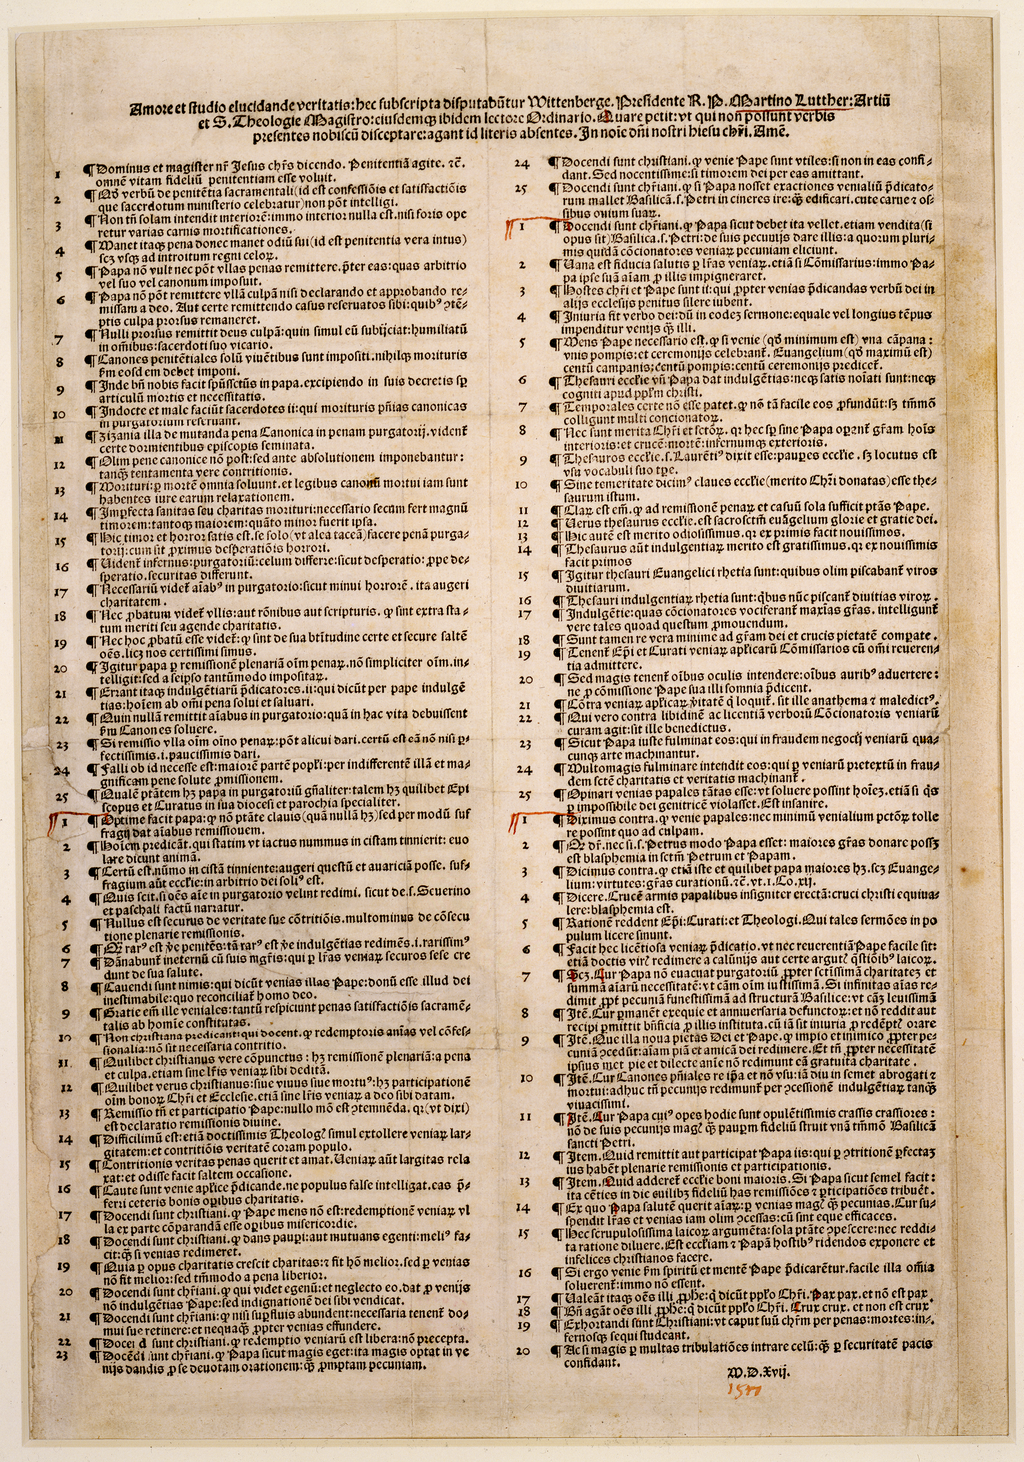 Amore et studio elucidande veritatis: hec subscripta disputabūtur Wittenberge. Presidente R. P. Martino Lutther: Artiū
et S. Theologie Magistro: eiusdemqȝ ibidem lectore Ordinario. Quare petit: vt qui non possunt verbis
presentes nobiscū disceptare: agant id literis absentes. In noīe dn̄i nostri hiesu chr̄i. Amē.
1 ¶ Dominus et magister nr̄ Jesus chr̄s dicendo. Penitentiā agite. ⁊c̄.
omnē vitam fideliū penitentiam esse voluit.
2 ¶ Qd̄ verbū de penitētia sacramentali (id est confessiōis et satisfactiōis
que sacerdotum ministerio celebratur) non pōt intelligi.
3 ¶ Non tn̄ solam intendit interiorē: immo interior nulla est. nisi foris ope
retur varias carnis mortificationes.
4 ¶ Manet itaqȝ pena donec manet odiū sui (id est penitentia vera intus)
scȝ vsqȝ ad introitum regni celoꝝ.
5 ¶ Papa nō vult nec pōt vllas penas remittere. p̄ter eas: quas arbitrio
vel suo vel canonum imposuit.
6 ¶ Papa nō pōt remittere vllā culpā nisi declarando et approbando re⸗
missam a deo. Aut certe remittendo casus reseruatos sibi: quibꝰ ꝯtē⸗
ptis culpa prorsus remaneret.
7 ¶ Nulli prorsus remittit deus culpā: quin simul eū subijciat: humiliatū
in oīnibus: sacerdoti suo vicario.
8 ¶ Canones penitētiales solū viuētibus sunt impositi. nihilqȝ morituris
ẜm eosdem debet imponi.
9 ¶ Inde bn̄ nobis facit sp̄ussctūs in papa. excipiendo in suis decretis sꝑ
articulū mortis et necessitatis.
10 ¶ Indocte et male faciūt sacerdotes ii: qui morituris pn̄ias canonicas
in purgatorium reseruant.
11 ¶ Zizania illa de mutanda pena Canonica in penam purgatorij. videnť
certe dormientibus episcopis seminata.
12 ¶ Olim pene canonice nō post: sed ante absolutionem imponebantur:
tanqȝ tentamenta vere contritionis.
13 ¶ Morituri: ꝑ mortē omnia soluunt. et legibus canonū mortui iam sunt
habentes iure earum relaxationem.
14 ¶ Imꝑfecta sanitas seu charitas morituri: necessario secam fert magnū
timorem: tantoqȝ maiorem: quāto minor fuerit ipsa.
15 ¶ Hic timor et horror satis est. se solo (vt alea taceā) facere penā purga⸗
torij: cum sit ꝓximus desperatiōis horrori.
16 ¶ Videnť infernus: purgatoriū: celum differre: sicut desperatio: ꝓpe de⸗
speratio. securitas differunt.
17 ¶ Necessariū videť aīabꝰ in purgatorio: sicut minui horrorē. ita augeri
charitatem.
18 ¶ Nec ꝓbatum videť vllis: aut rōnibus aut scripturis. ꝙ sint extra sta⸗
tum meriti seu agende charitatis.
19 ¶ Nec hoc ꝓbatū esse videť: ꝙ sint de sua btītudine certe et secure saltē
oēs. licȝ nos certissimi simus.
20 ¶ Igitur papa ꝑ remissionē plenariā oīm penaꝝ. nō simpliciter oīm. in⸗
telligit: sed a seipso tantūmodo impositaꝝ.
21 ¶ Errant itaqȝ indulgētiarū p̄dicatores. ii: qui dicūt per pape indulgē
tias: hoīem ab om̄i pena solui et saluari.
22 ¶ Quin nullā remittit aīabus in purgatorio: quā in hac vita debuissent
ẜm Canones soluere.
23 ¶ Si remissio vlla oīm oīno penaꝝ: pōt alicui dari. certū est eā nō nisi ꝑ⸗
fectissimis. i. paucissimis dari.
24 ¶ Falli ob id necesse est: maiorē partē popl̄i: per indifferentē illā et ma⸗
gnificam pene solute ꝓmissionem.
25 ¶ Qualē ptātem hȝ papa in purgatoriū gn̄aliter: talem hȝ quilibet Epi
scopus et Curatus in sua diocesi et parochia specialiter.
1 ¶ Optime facit papa: ꝙ nō ptāte clauis (quā nullā hȝ) sed per modū suf
fragij dat aīabus remissionem.
2 ¶ Hoīem predicāt. qui statim vt iactus nummus in cistam tinnierit: euo
lare dicunt animā.
3 ¶ Certū est. nūmo in cistā tinniente: augeri questū et auariciā posse. suf⸗
fragium aūt eccl̄ie: in arbitrio dei soliꝰ est.
4 ¶ Quis scit. si oēs aīe in purgatorio velint redimi. sicut de. s. Seuerino
et paschali factū narratur.
5 ¶ Nullus est securus de veritate sue cōtritiōis. multominus de cōsecu
tione plenarie remissionis.
6 ¶ Qȝ rarꝰ est v̄e penitēs: tā rarꝰ est v̄e indulgētias redimēs. i. rarissimꝰ
7 ¶ Dānabunť ineternū cū suis mgr̄is: qui ꝑ lr̄as veniaꝝ securos sese cre
dunt de sua salute.
8 ¶ Cauendi sunt nimis: qui dicūt venias illas Pape: donū esse illud dei
inestimabile: quo reconciliať homo deo.
9 ¶ Gratie em̄ ille veniales: tantū respiciunt penas satisfactiōis sacramē⸗
talis ab homīe constitutas.
10 ¶ Non christiana predicant: qui docent. ꝙ redemptoris anīas vel cōfes⸗
sionalia: nō sit necessaria contritio.
11 ¶ Quilibet christianus vere cōpunctus: hȝ remissionē plenariā: a pena
et culpa. etiam sine lr̄is veniaꝝ sibi debitā.
12 ¶ Quilibet verus christianus: siue viuus siue mortuꝰ: hȝ participationē
oīm bonoꝝ Chr̄i et Ecclesie. etiā sine lr̄is veniaꝝ a deo sibi datam.
13 ¶ Remissio tn̄ et participatio Pape: nullo mō est ꝯtemnēda. qꝛ (vt dixi)
est declaratio remissionis diuine.
14 ¶ Difficilimū est: etiā doctissimis Theologꝭ simul extollere veniaꝝ lar⸗
gitatem: et contritiōis veritatē coram populo.
15 ¶ Contritionis veritas penas querit et amat. Ueniaꝝ aūt largitas rela
xat: et odisse facit saltem occasione.
16 ¶ Caute sunt venie apl̄ice p̄dicande. ne populus false intelligat. eas p̄⸗
ferri ceteris bonis oꝑibus charitatis.
17 ¶ Docendi sunt christiani. ꝙ Pape mens nō est: redemptionē veniaꝝ vl
la ex parte cōparandā esse oꝑibus misericordie.
18 ¶ Docendi sunt christiani. ꝙ dans pauꝑi: aut mutuans egenti: meliꝰ fa⸗
cit: qȝ si venias redimeret.
19 ¶ Quia ꝑ opus charitatis crescit charitas: ⁊ fit hō melior. sed ꝑ venias
nō fit melior: sed tm̄modo a pena liberior.
20 ¶ Docendi sunt chr̄iani. ꝙ qui videt egenū: et neglecto eo. dat ꝓ venijs
nō indulgētias Pape: sed indignationē dei sibi vendicat.
21 ¶ Docendi sunt chr̄iani: ꝙ nisi suꝑfluis abundent: necessaria tenenť do⸗
mui sue retinere: et nequaqȝ ꝓpter venias effundere.
22 ¶ Docēdi sunt christiani. ꝙ redemptio veniarū est libera: nō precepta.
23 ¶ Docēdi sunt chr̄iani. ꝙ Papa sicut magis eget: ita magis optat in ve
nijs dandis ꝓ se deuotam orationem: qȝ ꝓmptam pecuniam.
24 ¶ Docendi sunt christiani. ꝙ venie Pape sunt vtiles: si non in eas confi⸗
dant. Sed nocentissime: si timorem dei per eas amittant.
25 ¶ Docendi sunt chr̄iani. ꝙ si Papa nosset exactiones venialiū p̄dicato⸗
rum mallet Basilicā. s. Petri in cineres ire: qȝ edificari. cute carne ⁊ os⸗
sibus ouium suaꝝ.
1 ¶ Docendi sunt chr̄iani. ꝙ Papa sicut debet ita vellet. etiam vendita (si
opus sit) Basilica. s. Petri: de suis pecunijs dare illis: a quorum pluri⸗
mis quidā cōcionatores veniaꝝ pecuniam eliciunt.
2 ¶ Uana est fiducia salutis ꝑ lr̄as veniaꝝ. etiā si Cōmissarius: immo Pa⸗
pa ipse suā aīam ꝓ illis impigneraret.
3 ¶ Hostes chr̄i et Pape sunt ii: qui ꝓpter venias p̄dicandas verbū dei in
alijs ecclesijs penitus silere iubent.
4 ¶ Iniuria fit verbo dei: dū in eodeȝ sermone: equale vel longius tēpus
impenditur venijs qȝ illi.
5 ¶ Mens Pape necessario est. ꝙ si venie (qd̄ minimum est) vna cāpana:
vnis pompis: et ceremonijs celebranť. Euangelium (qd̄ maximū est)
centū campanis: centū pompis: centū ceremonijs prediceť.
6 ¶ Thesauri eccl̄ie vn̄ Papa dat indulgētias: neqȝ satis noīati sunt: neqȝ
cogniti apud ppl̄m christi.
7 ¶ Temporales certe nō esse patet. ꝙ nō tā facile eos ꝓfundūt: sȝ tm̄mō
colligunt multi concionatoꝝ.
8 ¶ Nec sunt merita Chr̄i et sctōꝝ. qꝛ hec sꝑ sine Papa oꝑanť gr̄am hoīs
interioris: et crucē: mortē: infernumqȝ exterioris.
9 ¶ Thesauros eccl̄ie. s. Laurētiꝰ dixit esse: pauꝑes eccl̄ie. sȝ locutus est
vsu vocabuli suo tꝑe.
10 ¶ Sine temeritate dicimꝰ claues eccl̄ie (merito Chr̄i donatas) esse the⸗
saurum istum.
11 ¶ Claꝝ est em̄. ꝙ ad remissionē penaꝝ et casuū sola sufficit ptās Pape.
12 ¶ Uerus thesaurus eccl̄ie. est sacrosctm̄ euāgelium glorie et gratie dei.
13 ¶ Hic autē est merito odiosissimus. qꝛ ex primis facit nouissimos.
14 ¶ Thesaurus aūt indulgentiaꝝ merito est gratissimus. qꝛ ex nouissimis
facit primos
15 ¶ Igitur thesauri Euangelici rhetia sunt: quibus olim piscabanť viros
diuitiarum.
16 ¶ Thesauri indulgentiaꝝ rhetia sunt: qb̄us nūc piscanť diuitias viroꝝ.
17 ¶ Indulgētie: quas cōcionatores vociferanť maxīas gr̄as. intelligunť
vere tales quoad questum ꝓmouendum.
18 ¶ Sunt tamen re vera minime ad gr̄am dei et crucis pietatē compate.
19 ¶ Tenenť Ep̄i et Curati veniaꝝ apl̄icarū Cōmissarios cū om̄i reueren⸗
tia admittere.
20 ¶ Sed magis tenenť oībus oculis intendere: oībus auribꝰ aduertere:
ne ꝓ cōmissione Pape sua illi somnia p̄dicent.
21 ¶ Cōtra veniaꝝ apl̄icaꝝ v̄itatē q̇ loquiť. sit ille anathema ⁊ maledictꝰ.
22 ¶ Qui vero contra libidinē ac licentiā verborū Cōcionatoris veniarū
curam agit: sit ille benedictus.
23 ¶ Sicut Papa iuste fulminat eos: qui in fraudem negocij veniarū qua⸗
cunqȝ arte machinantur.
24 ¶ Multomagis fulminare intendit eos: qui ꝑ veniarū pretextū in frau⸗
dem sctē charitatis et veritatis machinanť.
25 ¶ Opinari venias papales tātas esse: vt soluere possint hoīeȝ. etiā si qs̄
ꝑ impossibile dei genitricē violasset. Est insanire.
1 ¶ Diximus contra. ꝙ venie papales: nec minimū venialium pctōꝝ tolle
re possint quo ad culpam.
2 ¶ Qȝ dr̄. nec si. s. Petrus modo Papa esset: maiores gr̄as donare posseȝ
est blasphemia in sctm̄ Petrum et Papam.
3 ¶ Dicimus contra. ꝙ etiā iste et quilibet papa maiores hȝ. scȝ Euange⸗
lium: virtutes: gr̄as curationū. ⁊c̄. vt. i. Co. xij.
4 ¶ Dicere. Crucē armis papalibus insigniter erectā: cruci christi equiua⸗
lere: blasphemia est.
5 ¶ Rationē reddent Ep̄i: Curati: et Theologi. Qui tales sermōes in po
pulum licere sinunt.
6 ¶ Facit hec licētiosa veniaꝝ p̄dicatio. vt nec reuerentiā Pape facile sit:
etiā doctis virꝭ redimere a calūnijs aut certe argutꝭ qst̄iōibꝰ laicoꝝ.
7 ¶ Scȝ. Cur Papa nō euacuat purgatoriū ꝓpter sctissimā charitateȝ et
summā aīarū necessitatē: vt cām oīm iustissimā. Si infinitas aīas re⸗
dimit ꝓpť pecuniā funestissimā ad structurā Basilice: vt cāȝ leuissimā
8 ¶ Itē. Cur ꝑmanēt exequie et anniuersaria defunctoꝝ: et nō reddit aut
recipi ꝑmittit bn̄ficia ꝓ illis instituta. cū iā sit iniuria ꝓ redēptꝭ orare
9 ¶ Itē. Que illa noua pietas Dei et Pape. ꝙ impio et inimico ꝓpter pe⸗
cuniā ꝯcedūt: aīam piā et amicā dei redimere. Et tn̄ ꝓpter necessitatē
ipsius met pie et dilecte aīe nō redimunt eā gratuita charitate.
10 ¶ Itē. Cur Canones pn̄iales re ip̄a et nō vsu: iā diu in semet abrogati ⁊
mortui: adhuc tn̄ pecunijs redimunť per ꝯcessionē indulgētiaꝝ tanqȝ
viuacissimi.
11 ¶ Itē. Cur Papa cuiꝰ opes hodie sunt opulētissimis crassis crassiores:
nō de suis pecunijs magꝭ qȝ pauꝑum fideliū struit vnā tm̄mō Basilicā
sancti Petri.
12 ¶ Item. Quid remittit aut participat Papa iis: qui ꝑ ꝯtritionē ꝑfectaȝ
ius habēt plenarie remissionis et participationis.
13 ¶ Item. Quid adderet eccl̄ie boni maioris. Si Papa sicut semel facit:
ita cēties in die cuilibȝ fideliū has remissiōes ⁊ ꝑticipatiōes tribuēt.
14 ¶ Ex quo Papa salutē querit aīaꝝ: ꝑ venias magꝭ qȝ pecunias. Cur su⸗
spendit lr̄as et venias iam olim ꝯcessas: cū sint eque efficaces.
15 ¶ Hec scrupulosissima laicoꝝ argumēta: sola ptāte ꝯpescere: nec reddi⸗
ta ratione diluere. Est eccl̄iam ⁊ Papā hostibꝰ ridendos exponere et
infelices christianos facere.
16 ¶ Si ergo venie ẜm spiritū et mentē Pape p̄dicarētur. facile illa om̄ia
soluerenť: immo nō essent.
17 ¶ Ualeāt itaqȝ oēs illi ꝓphe: q̇ dicūt ppl̄o Chr̄i. Pax pax. et nō est pax.
18 ¶ Bn̄ agāt oēs illi ꝓphe: q̇ dicūt ppl̄o Chr̄i. Crux crux. et non est crux.
19 ¶ Exhortandi sunt Christiani: vt caput suū chr̄m per penas: mortes: in⸗
fernosqȝ sequi studeant.
20 ¶ Ac si magis ꝑ multas tribulatiōes intrare celū: qȝ ꝑ securitatē pacis
confidant.
M. D. Xvij.
1517